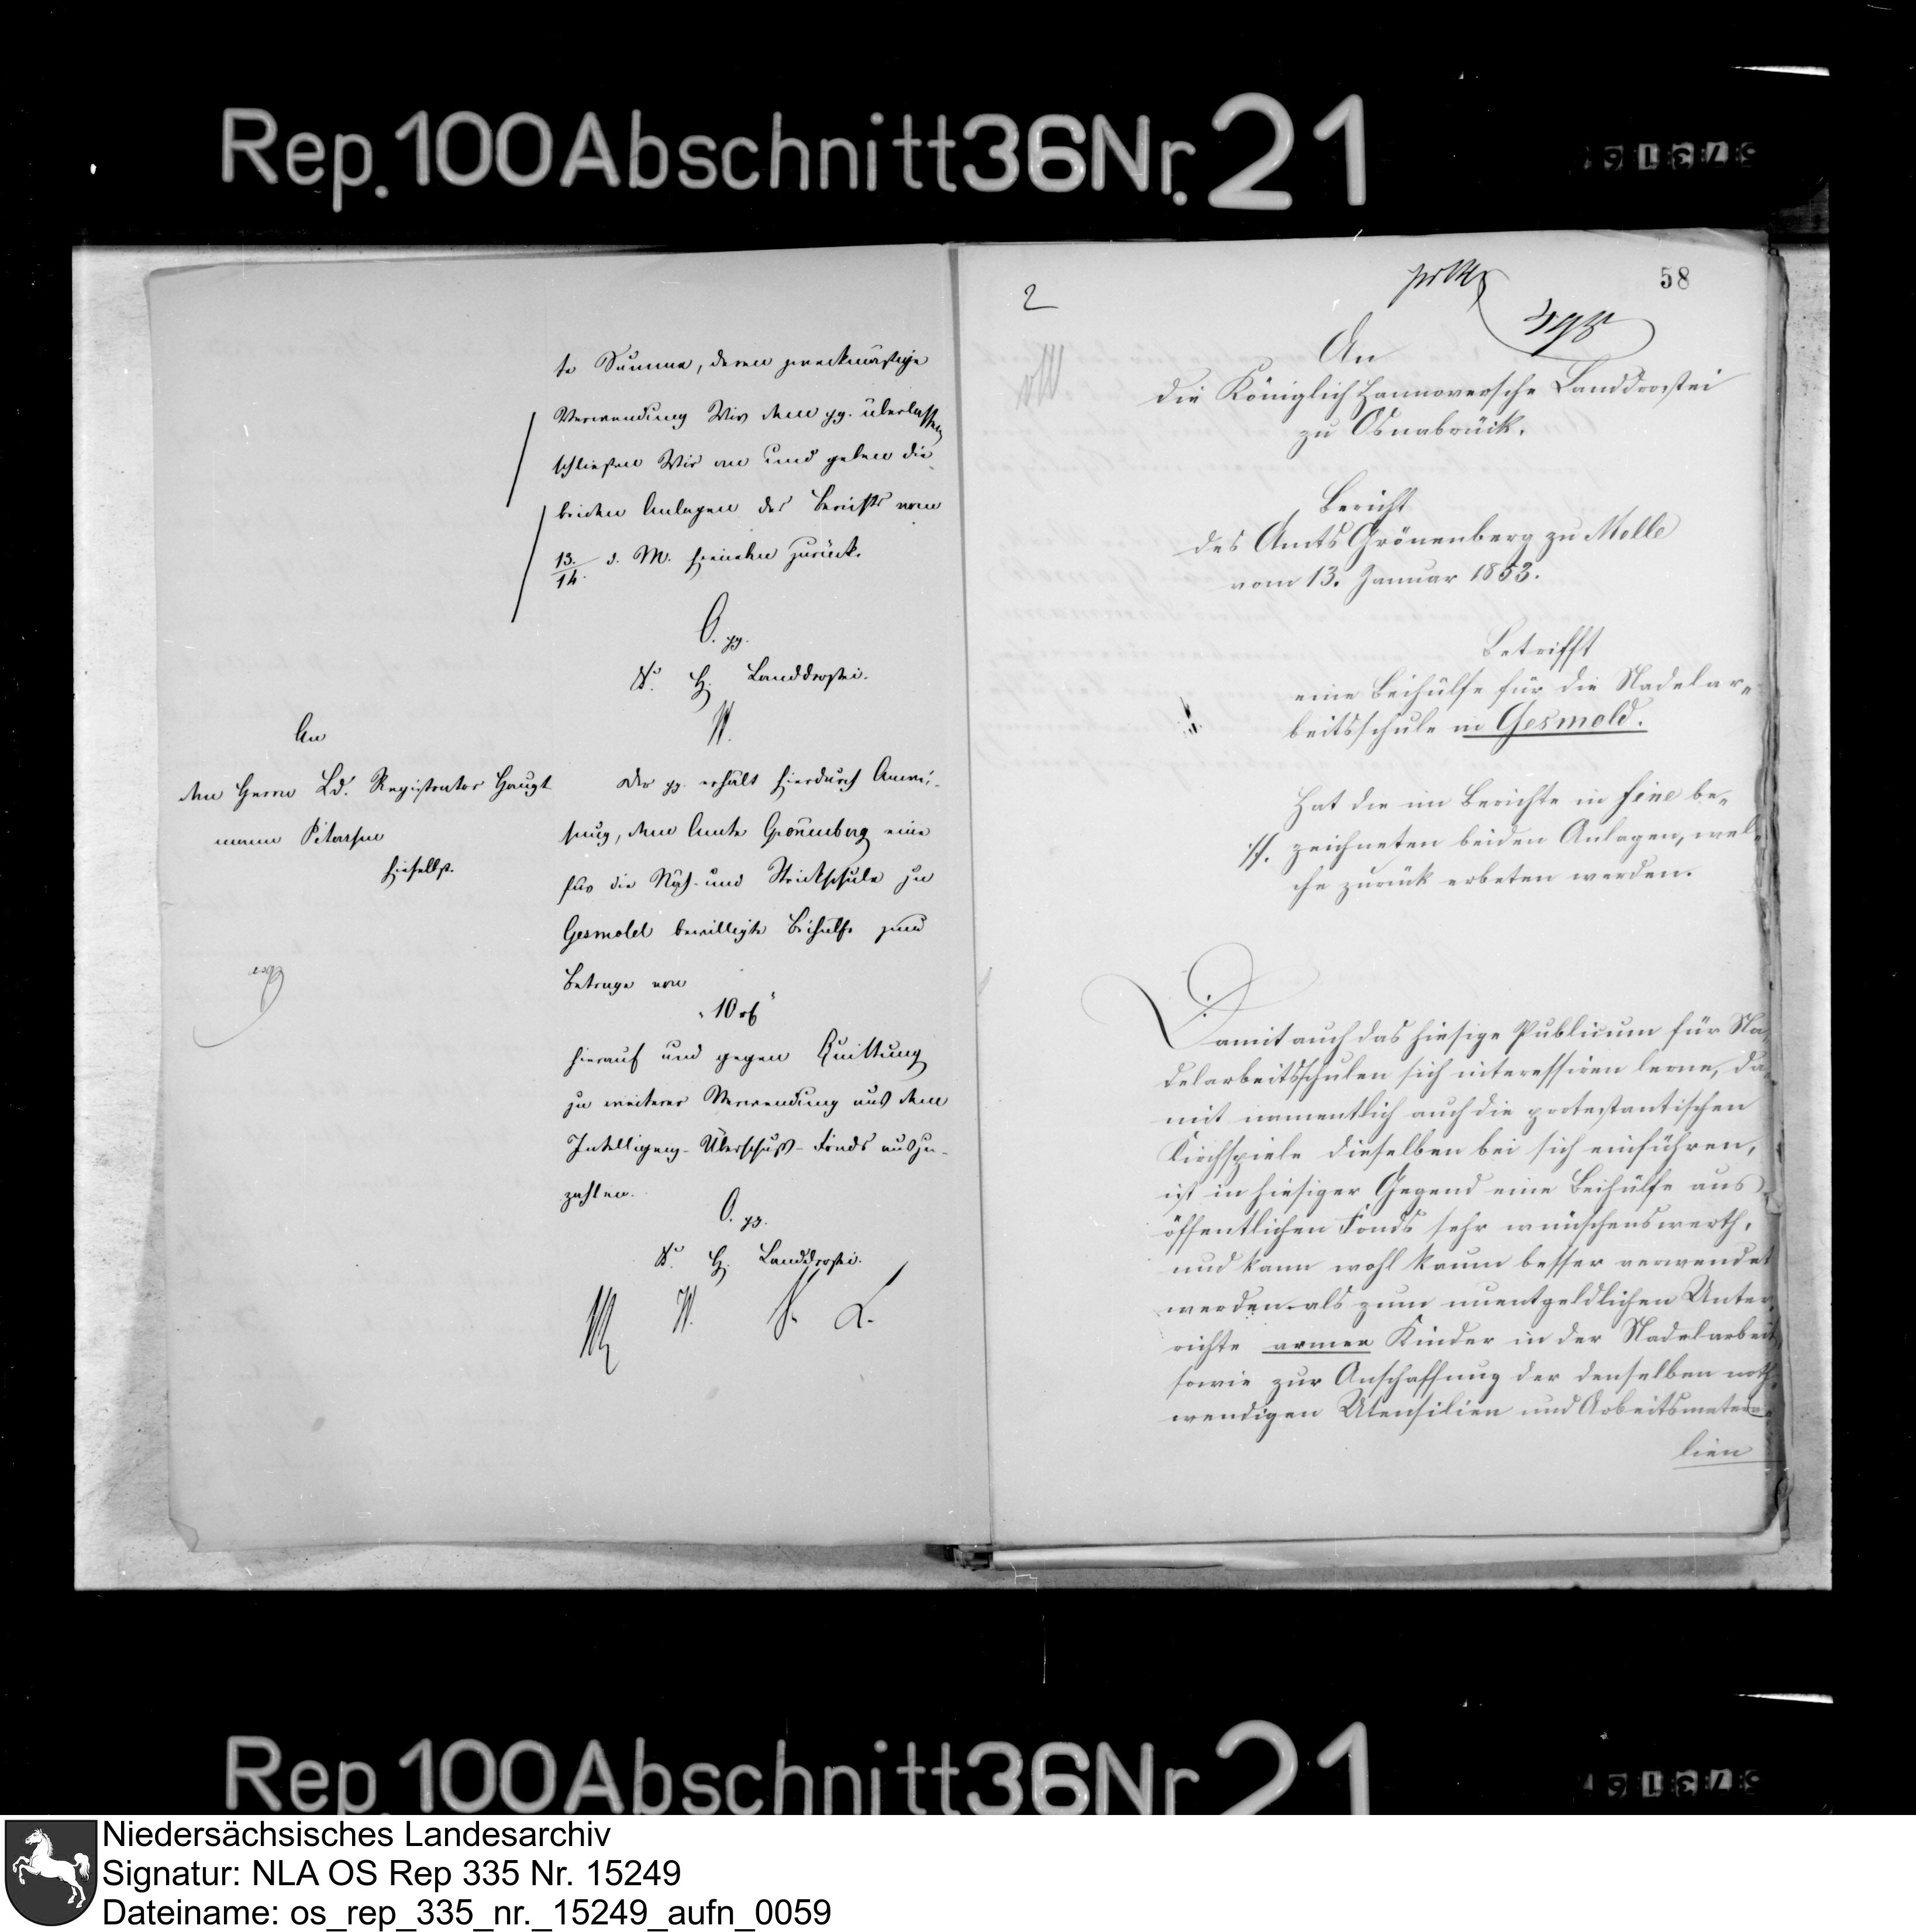 Rep. 100 Abschnitt 36 Nr. 21
te Summe, deren zweckmäßige
Verwendung Wir dem pp. überlassen
schließen Wir an und geben die
beiden Anlagen des Berichts vom
13./14. d. M. hieneben zurück.
O. pp.
K. H. Landdrostei.
W.
An
den Herrn Ld. Registrator Haupt-
mann Petersen
hieselbst.
Der pp. erhält hierdurch Anwei-
sung, dem Amte Grönenberg eine
für die Näh- und Strickschule zu
Gesmold bewilligte Beihülfe zum
Betrage von
"10 rt"
hierauf und gegen Quittung
zu weiterer Verwendung aus dem
Intelligenz-Überschuß-Fonds auszu-
zahlen.
O. pp.
K. H. Landdrostei.
W. L.
2
58
An
die Königlich Hannoversche Landdrostei
zu Osnabrück.
Bericht
des Amts Grönenberg zu Melle
vom 13. Januar 1853.
Betrifft
eine Beihülfe für die Nadelar-
beitsschule in Gesmold.
Hat die im Berichte in fine be-
://. zeichneten beiden Anlagen, wel-
che zurück erbeten werden.
Damit auch das hiesige Publicum für Na-
delarbeitsschulen sich interessiren lerne, da-
mit namentlich auch die protestantischen
Kirchspiele dieselben bei sich einführen,
ist in hiesiger Gegend eine Beihülfe aus
öffentlichen Fonds sehr wünschenswerth,
und kann wohl kaum besser verwendet
werden als zum unentgeldlichen Unter-
richte armer Kinder in der Nadelarbeit,
sowie zur Anschaffung der denselben noth-
wendigen Utensilien und Arbeitsmateria-
lien
Rep. 100 Abschnitt 36 Nr. 21
Niedersächsisches Landesarchiv
Signatur: NLA OS Rep 335 Nr. 15249
Dateiname: os_rep_335_nr._15249_aufn_0059